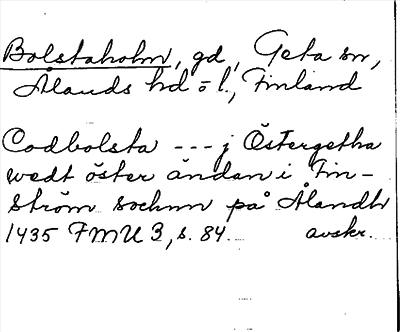 Bolstaholm, gd, Geta sn,
Ålands hd o l., Finland
Codbolsta --- j Östergetha
wedt öster ändan i Fin-
ström sochnn på Ålandh
1435 FMU 3, s. 84. avskr.